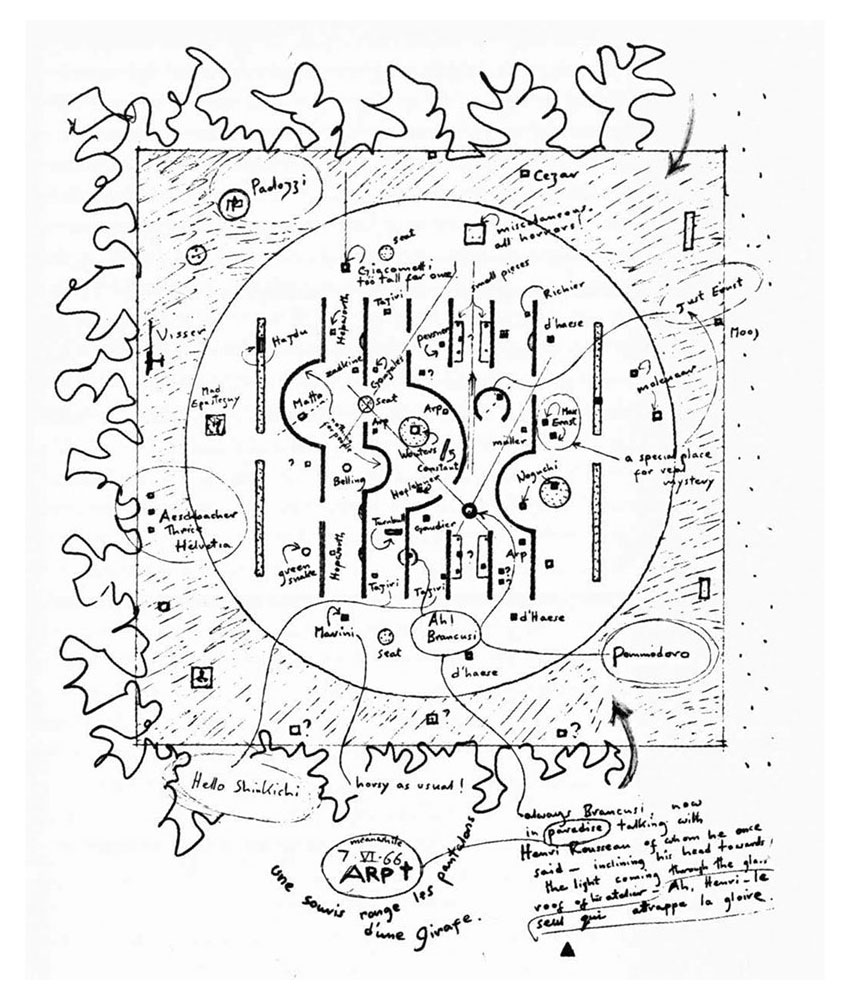 Cezar
Paolozzi
miscelaneous
all horrors!
seat
Giacometti
too tall for one
small pieces
Just Ernst
Richier
Tajiri
Hepworth
pevsner
d'haese
Visser
Hajdu
zadkine
Gonzales
?
molenaar
Mad
Matta
seat
Arp
Arp
Max
Ernst
Wouters
muller
Constant
a special place
for real
mystery
?
Belling
Noguchi
Aeschbacher
Thrice
Helvetia
Turnbull
Gaudier
?
green
snake
Hepworth
Arp
?
?
Tajiri
Tajiri
Marini
Ah!
Brancusi
d'Haese
seat
d'haese
Pommodoro
?
?
?
Hello Shinkichi
horsy as usual!
meanwhile
7-VI-66
ARP †
une souris range les pantalons
d'une girafe.
always Brancusi, now
in paradise talking with
Henri Rousseau of whom he once
said – inclining his head towards
the light coming through the glass
roof of his atelier – Ah, Henri – le
seul qui attrappe la gloire.